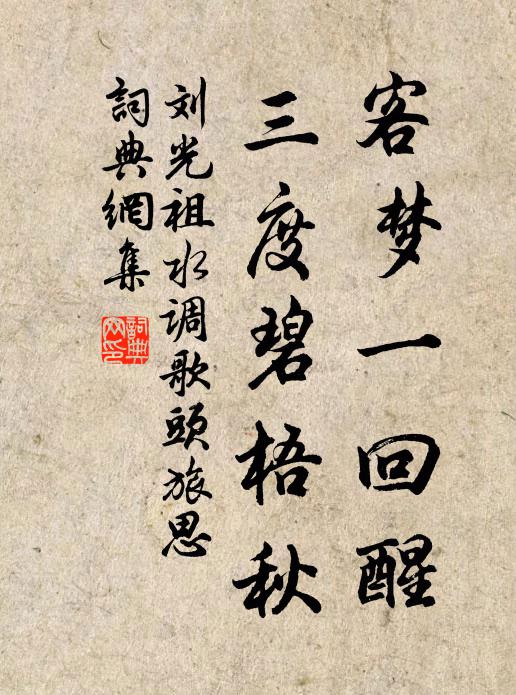 客梦一回醒
三度碧梧秋
刘光祖水调歌头旅思
詞典網集
詞典網印